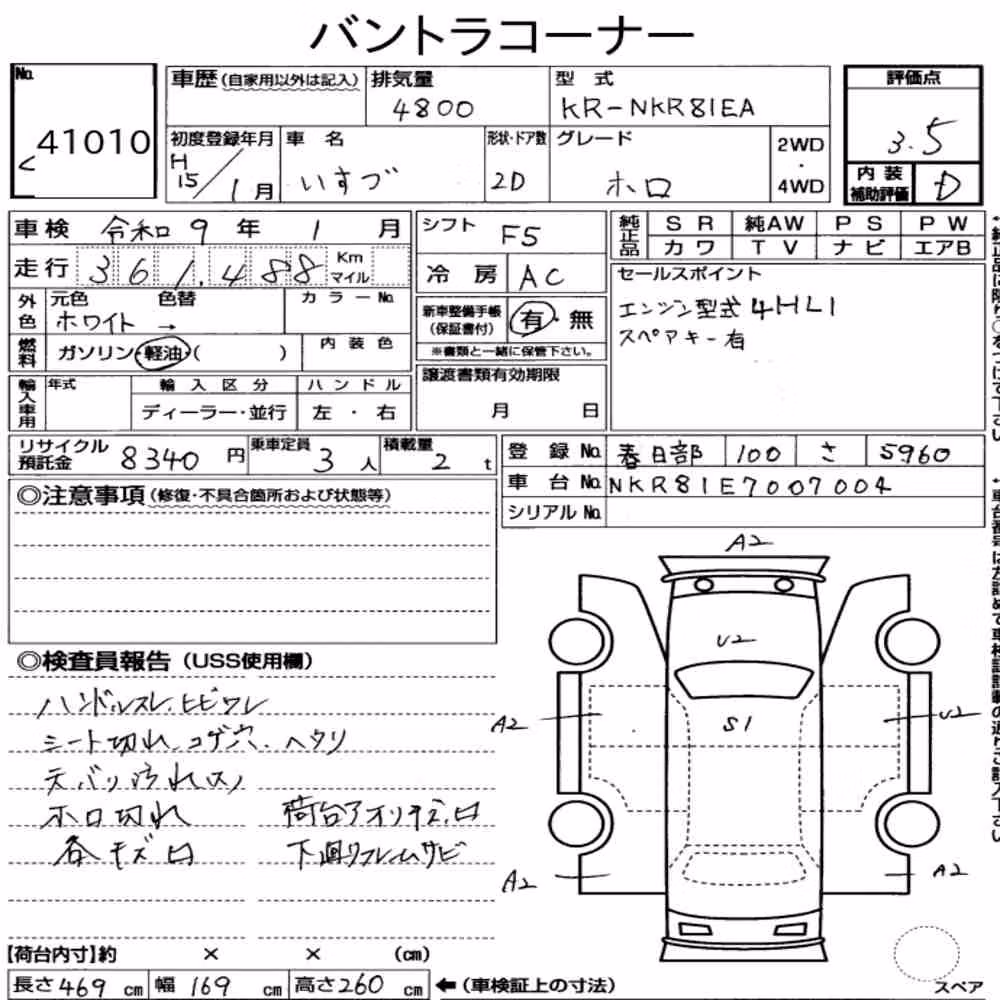 バントラコーナー
No.
41010
車歴 (自家用以外は記入)
排気量
4800
型 式
KR-NKR81EA
評価点
3.5
初度登録年月
H
15/1月
車 名
いすゞ
形状・ドア数
2D
グレード
ホロ
2WD
・
4WD
内 装
補助評価
D
車検 令和9年 1月
シフト F5
純正品
SR 純AW PS PW
カワ TV ナビ エアB
走行 361,488 Km マイル
冷房 AC
セールスポイント
エンジン型式 4HL1
スペアキー有
外色
元色 色替 カラーNo.
ホワイト →
新車整備手帳
(保証書付)
有・無
※書類と一緒に保管下さい。
燃料
ガソリン・軽油・( )
内装色
輸入車用
年式
輸入区分
ハンドル
ディーラー・並行
左・右
譲渡書類有効期限
月 日
リサイクル
預託金
8340円
乗車定員
3人
積載量
2t
登録No. 春日部 100 さ 5960
車台No. NKR81E7007004
シリアルNo.
◎注意事項 (修復・不具合箇所および状態等)
◎検査員報告 (USS使用欄)
ハンドルスレ、ヒビワレ
シート切れ、コゲ穴、ヘタリ
ホロ切れ
荷台アオリキズ、凹
各キズ凹
下廻りフレームサビ
A2
U2
S1
A2
U2
A2
A2
スペア
【荷台内寸】約 × × (cm)
長さ469cm 幅169cm 高さ260cm ←(車検証上の寸法)